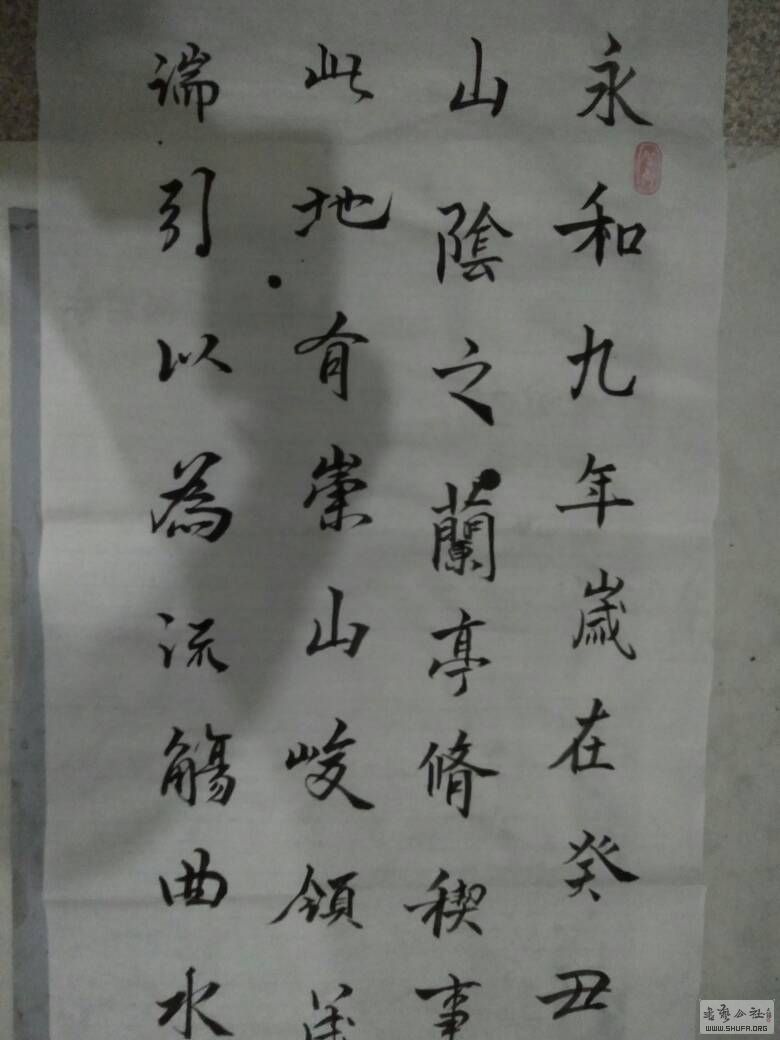 永和九年歲在癸丑
山陰之蘭亭脩稧事
此地有崇山峻領茂
湍引以為流觴曲水
書藝公社
WWW.SHUFA.ORG